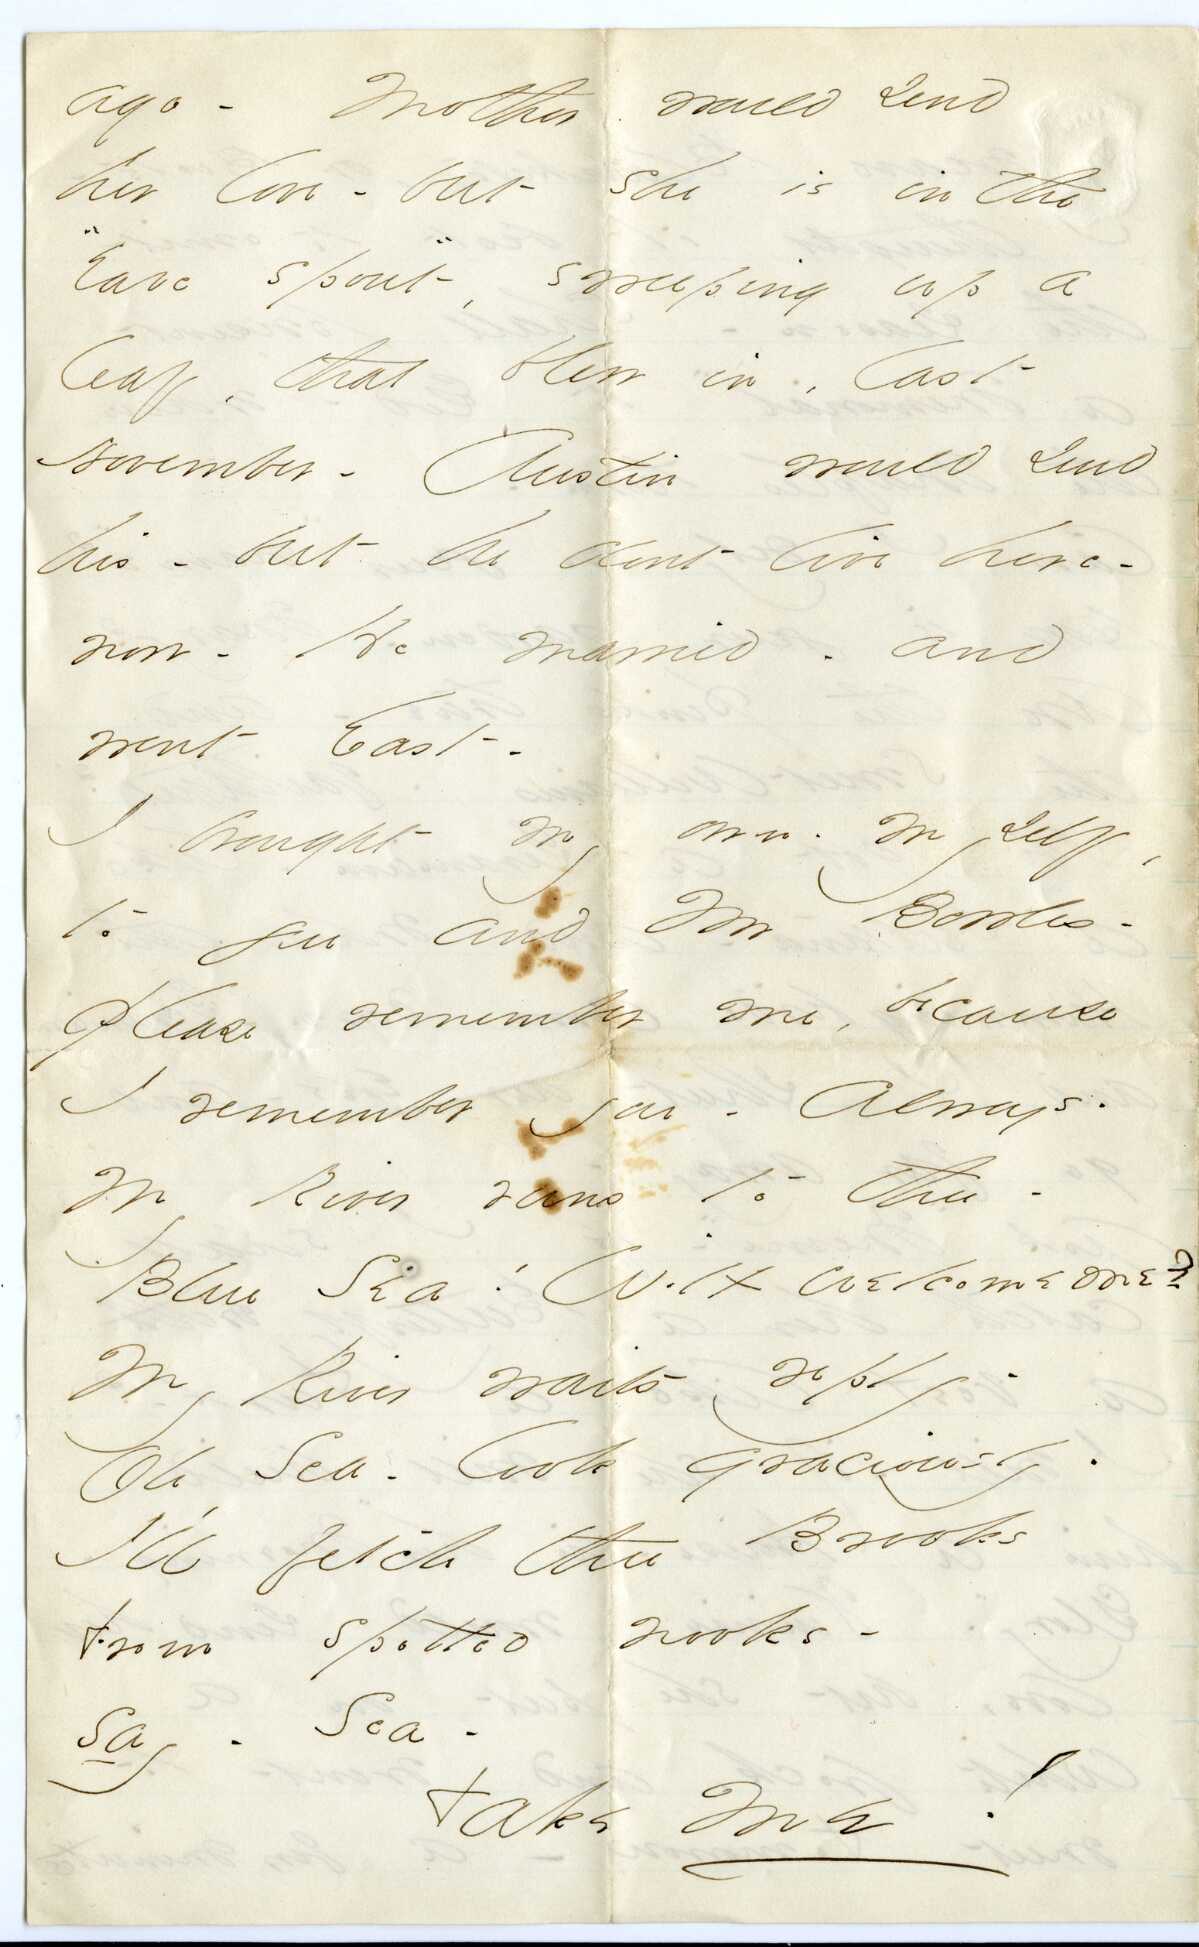 ago - Mother would send
her love - but she is in the
"Eave spout", sweeping up a
leaf, that blew in, last
November - Austin would send
his - but he dont live here -
now - He married - and
went East -
I brought my own - myself,
to you and Mr Bowles -
Please remember me, because
I remember you - Always -
My River runs to thee -
Blue Sea! Wilt welcome me?
My River waits reply -
Oh Sea - look graciously -
I'll fetch thee Brooks
from spotted nooks -
Say - Sea -
Take Me!